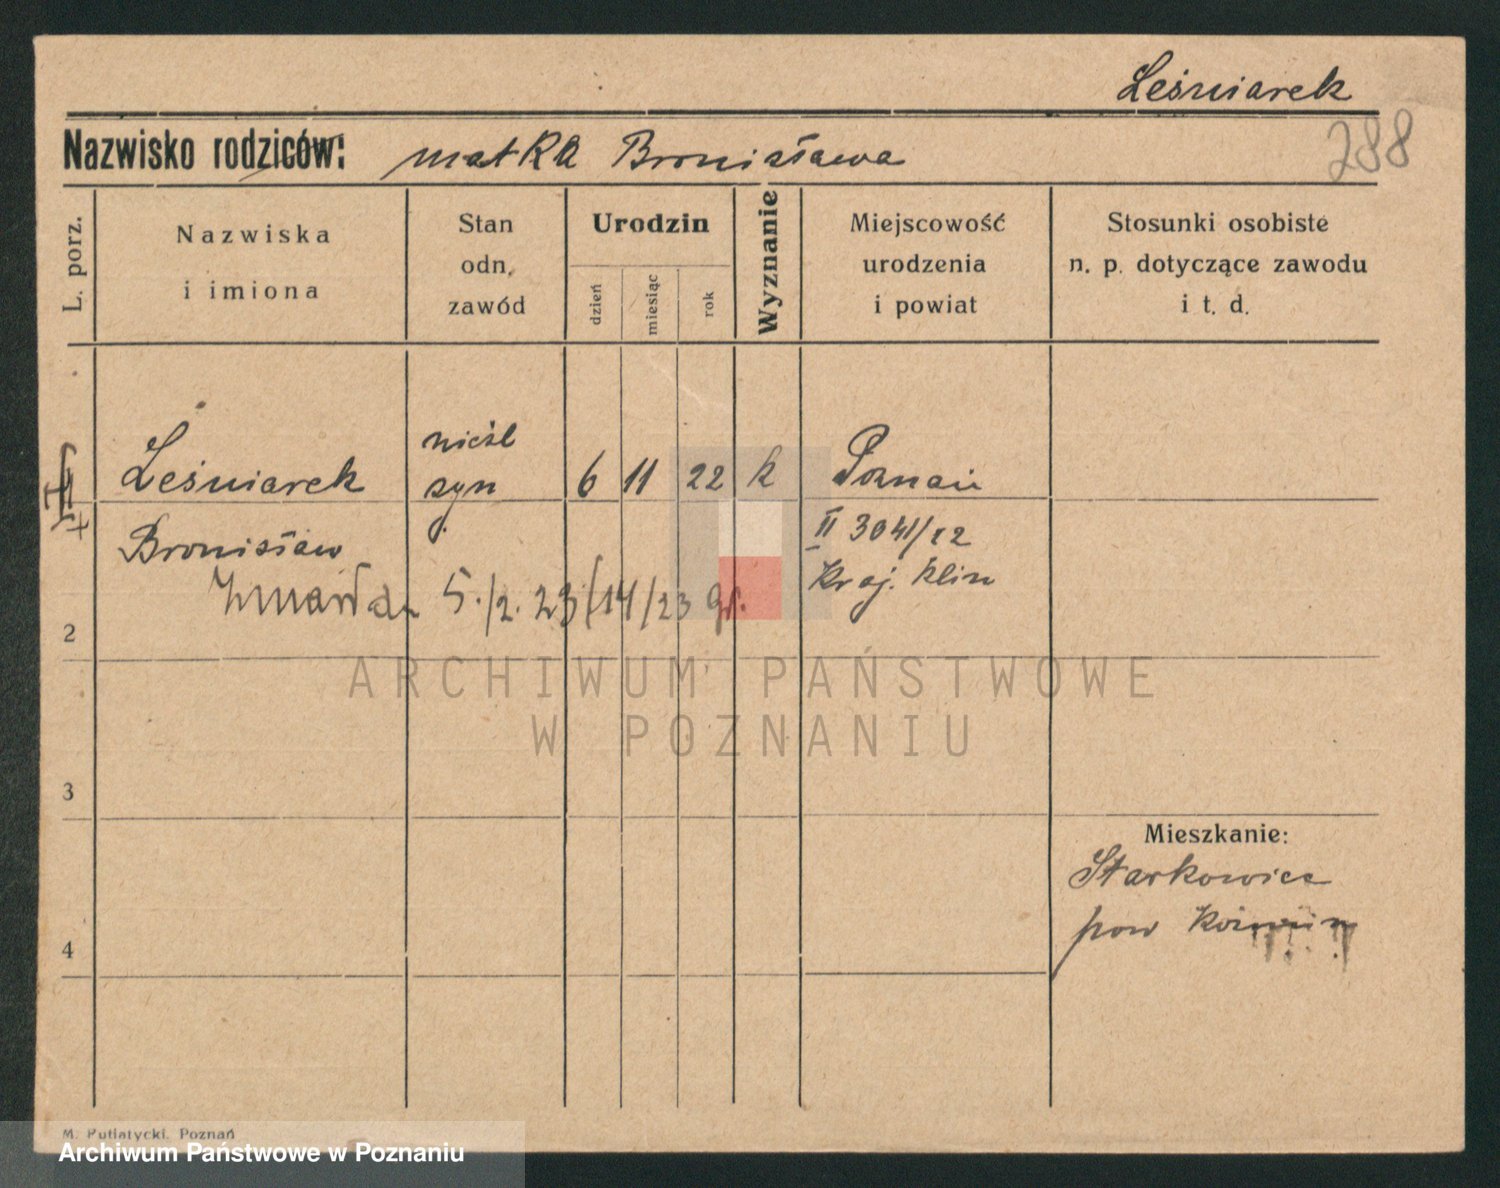 Leśniarek
Nazwisko rodziców: matka Bronisława
288
L. porz.
Nazwiska
i imiona
Stan
odn.
zawód
Urodzin
dzień
miesiąc
rok
Wyznanie
Miejscowość
urodzenia
i powiat
Stosunki osobiste
n. p. dotyczące zawodu
i t. d.
Leśniarek
nieśl
syn
6 11 22 k
Poznań
Bronisław
II 3041/22
Kraj. Klin
5./2. 23/14/23
2
ARCHIWUM PAŃSTWOWE
W POZNANIU
3
Mieszkanie:
Starkowiec
pow
4
M. Putiatycki. Poznań
Archiwum Państwowe w Poznaniu